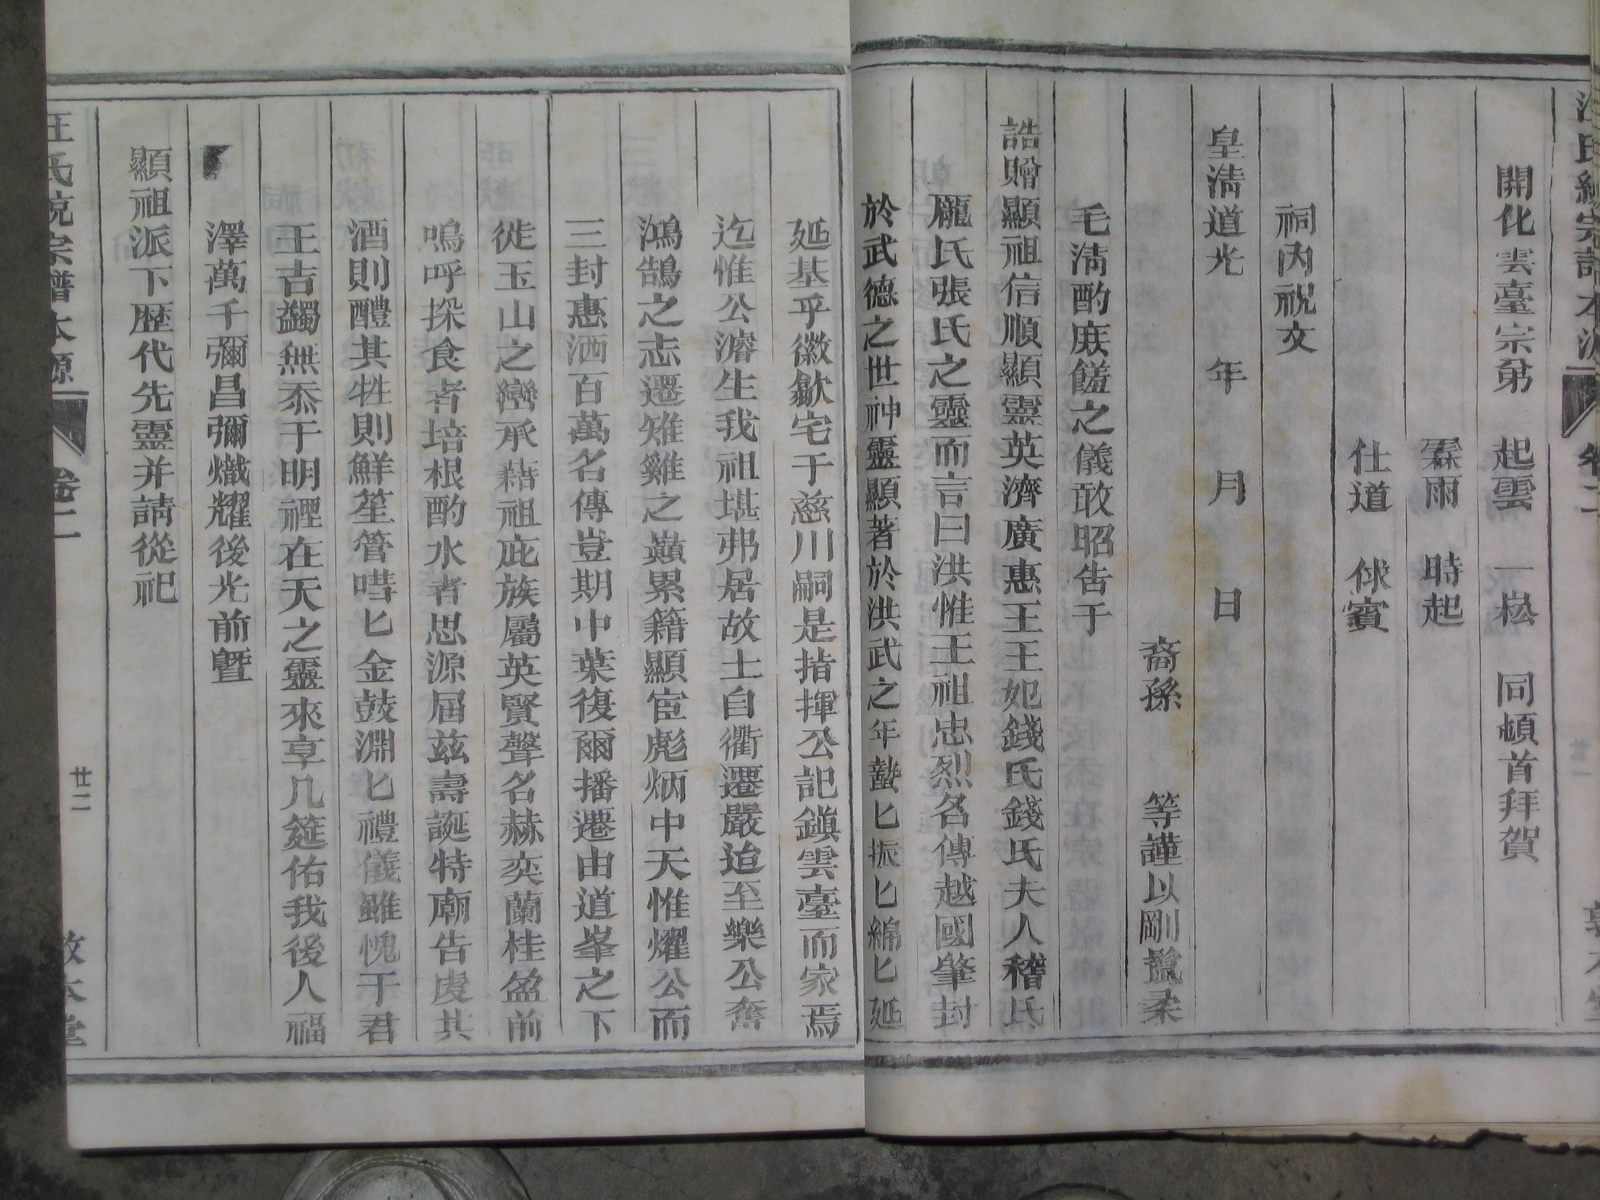 開化雲臺宗弟　起雲　一崧　同頓首拜賀
霖雨　時起
仕道　俅賓
祠內祝文
皇清道光　年　月　日
裔孫　等謹以剛鬣柔
毛清酌庶饈之儀敢昭告于
誥贈顯祖信順顯靈英濟廣惠王王妃錢氏錢氏夫人稽氏
龐氏張氏之靈而言曰洪惟王祖忠烈名傳越國肇封
於武德之世神靈顯著於洪武之年蟄匕振匕綿匕延
延基乎徽歙宅于慈川嗣是指揮公記鎮雲臺而家焉
迄惟公濬生我祖堪弗居故土自衢遷嚴迨至樂公奮
鴻鵠之志遷雉雞之巔累籍顯宦彪炳中天惟燿公而
三封惠洒百萬名傳豈期中葉復爾播遷由道峯之下
徙玉山之巒承藉祖庇族屬英賢聲名赫奕蘭桂盈前
嗚呼採食者培根酌水者思源屆茲壽誕特廟告虔其
酒則醴其牲則鮮笙管嘒匕金鼓淵匕禮儀雖愧于君
王吉蠲無忝于明禋在天之靈來享几筵佑我後人福
澤萬千彌昌彌熾耀後光前曁
顯祖派下歷代先靈并請從祀
汪氏統宗譜本源　卷二　廿二　敦本堂